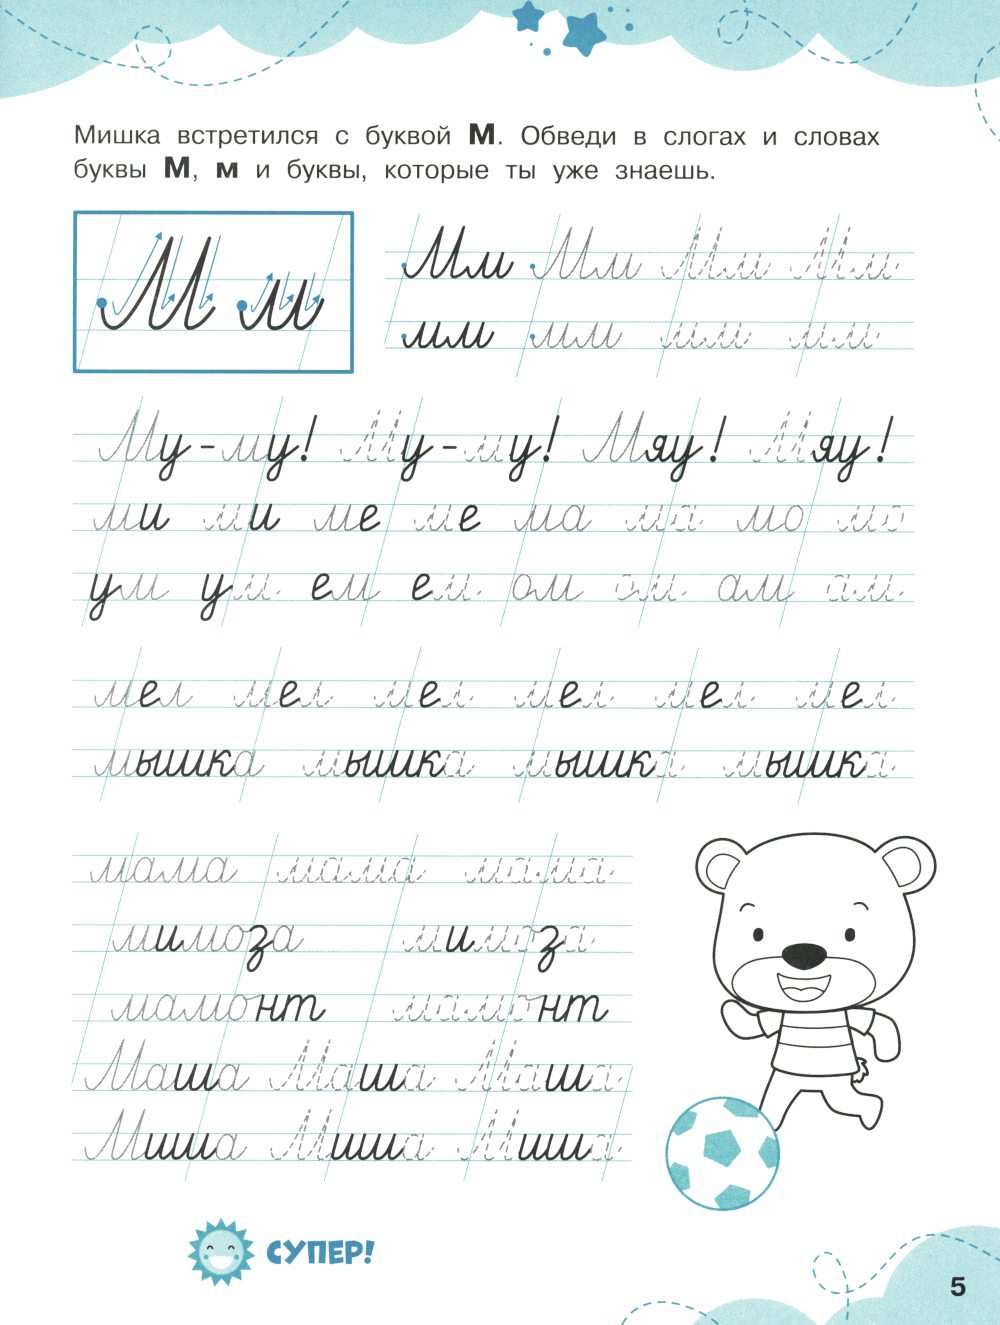 Мишка встретился с буквой М. Обведи в слогах и словах
буквы М, м и буквы, которые ты уже знаешь.
М м
Мм Мм Мм Мм
мм мм мм мм
Му-му! Му-му! Мяу! Мяу!
ми ми ме ме ма ма мо мо
ум ум ем ем ом ом ам ам
мел мел мел мел мел мел
мышка мышка мышка мышка
мама мама мама
мимоза мимоза
мамонт мамонт
Маша Маша Маша
Миша Миша Миша
СУПЕР!
5